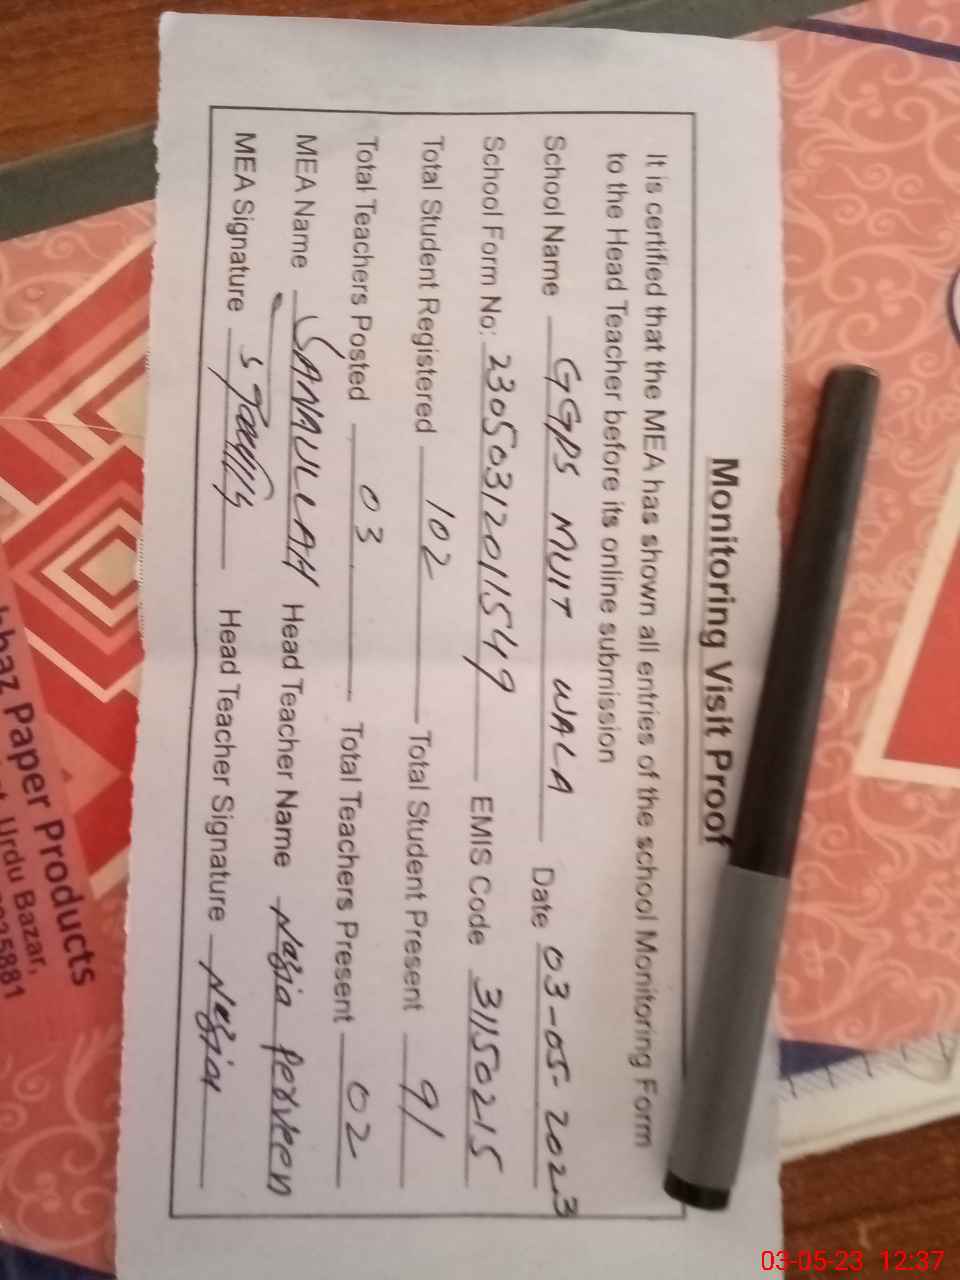 Monitoring Visit Proof
It is certified that the MEA has shown all entries of the school Monitoring Form
to the Head Teacher before its online submission
School Name GGPS MUIT WALA Date 03-05-2023
School Form No: 23050312011549 EMIS Code 31150215
Total Student Registered 102 Total Student Present 91
Total Teachers Posted 03 Total Teachers Present 02
MEA Name SANAULLAH Head Teacher Name Nazia Perveen
MEA Signature Head Teacher Signature Nazia
Paper Products
Urdu Bazar,
03-05-23 12:37